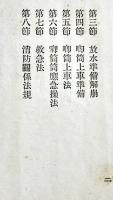 第三節　放水準備解崩
第四節　喞筒上車準備
第五節　喞筒上車法
第六節　喞筒應急操法
第七節　救急法
第八節　消防關係法規
二